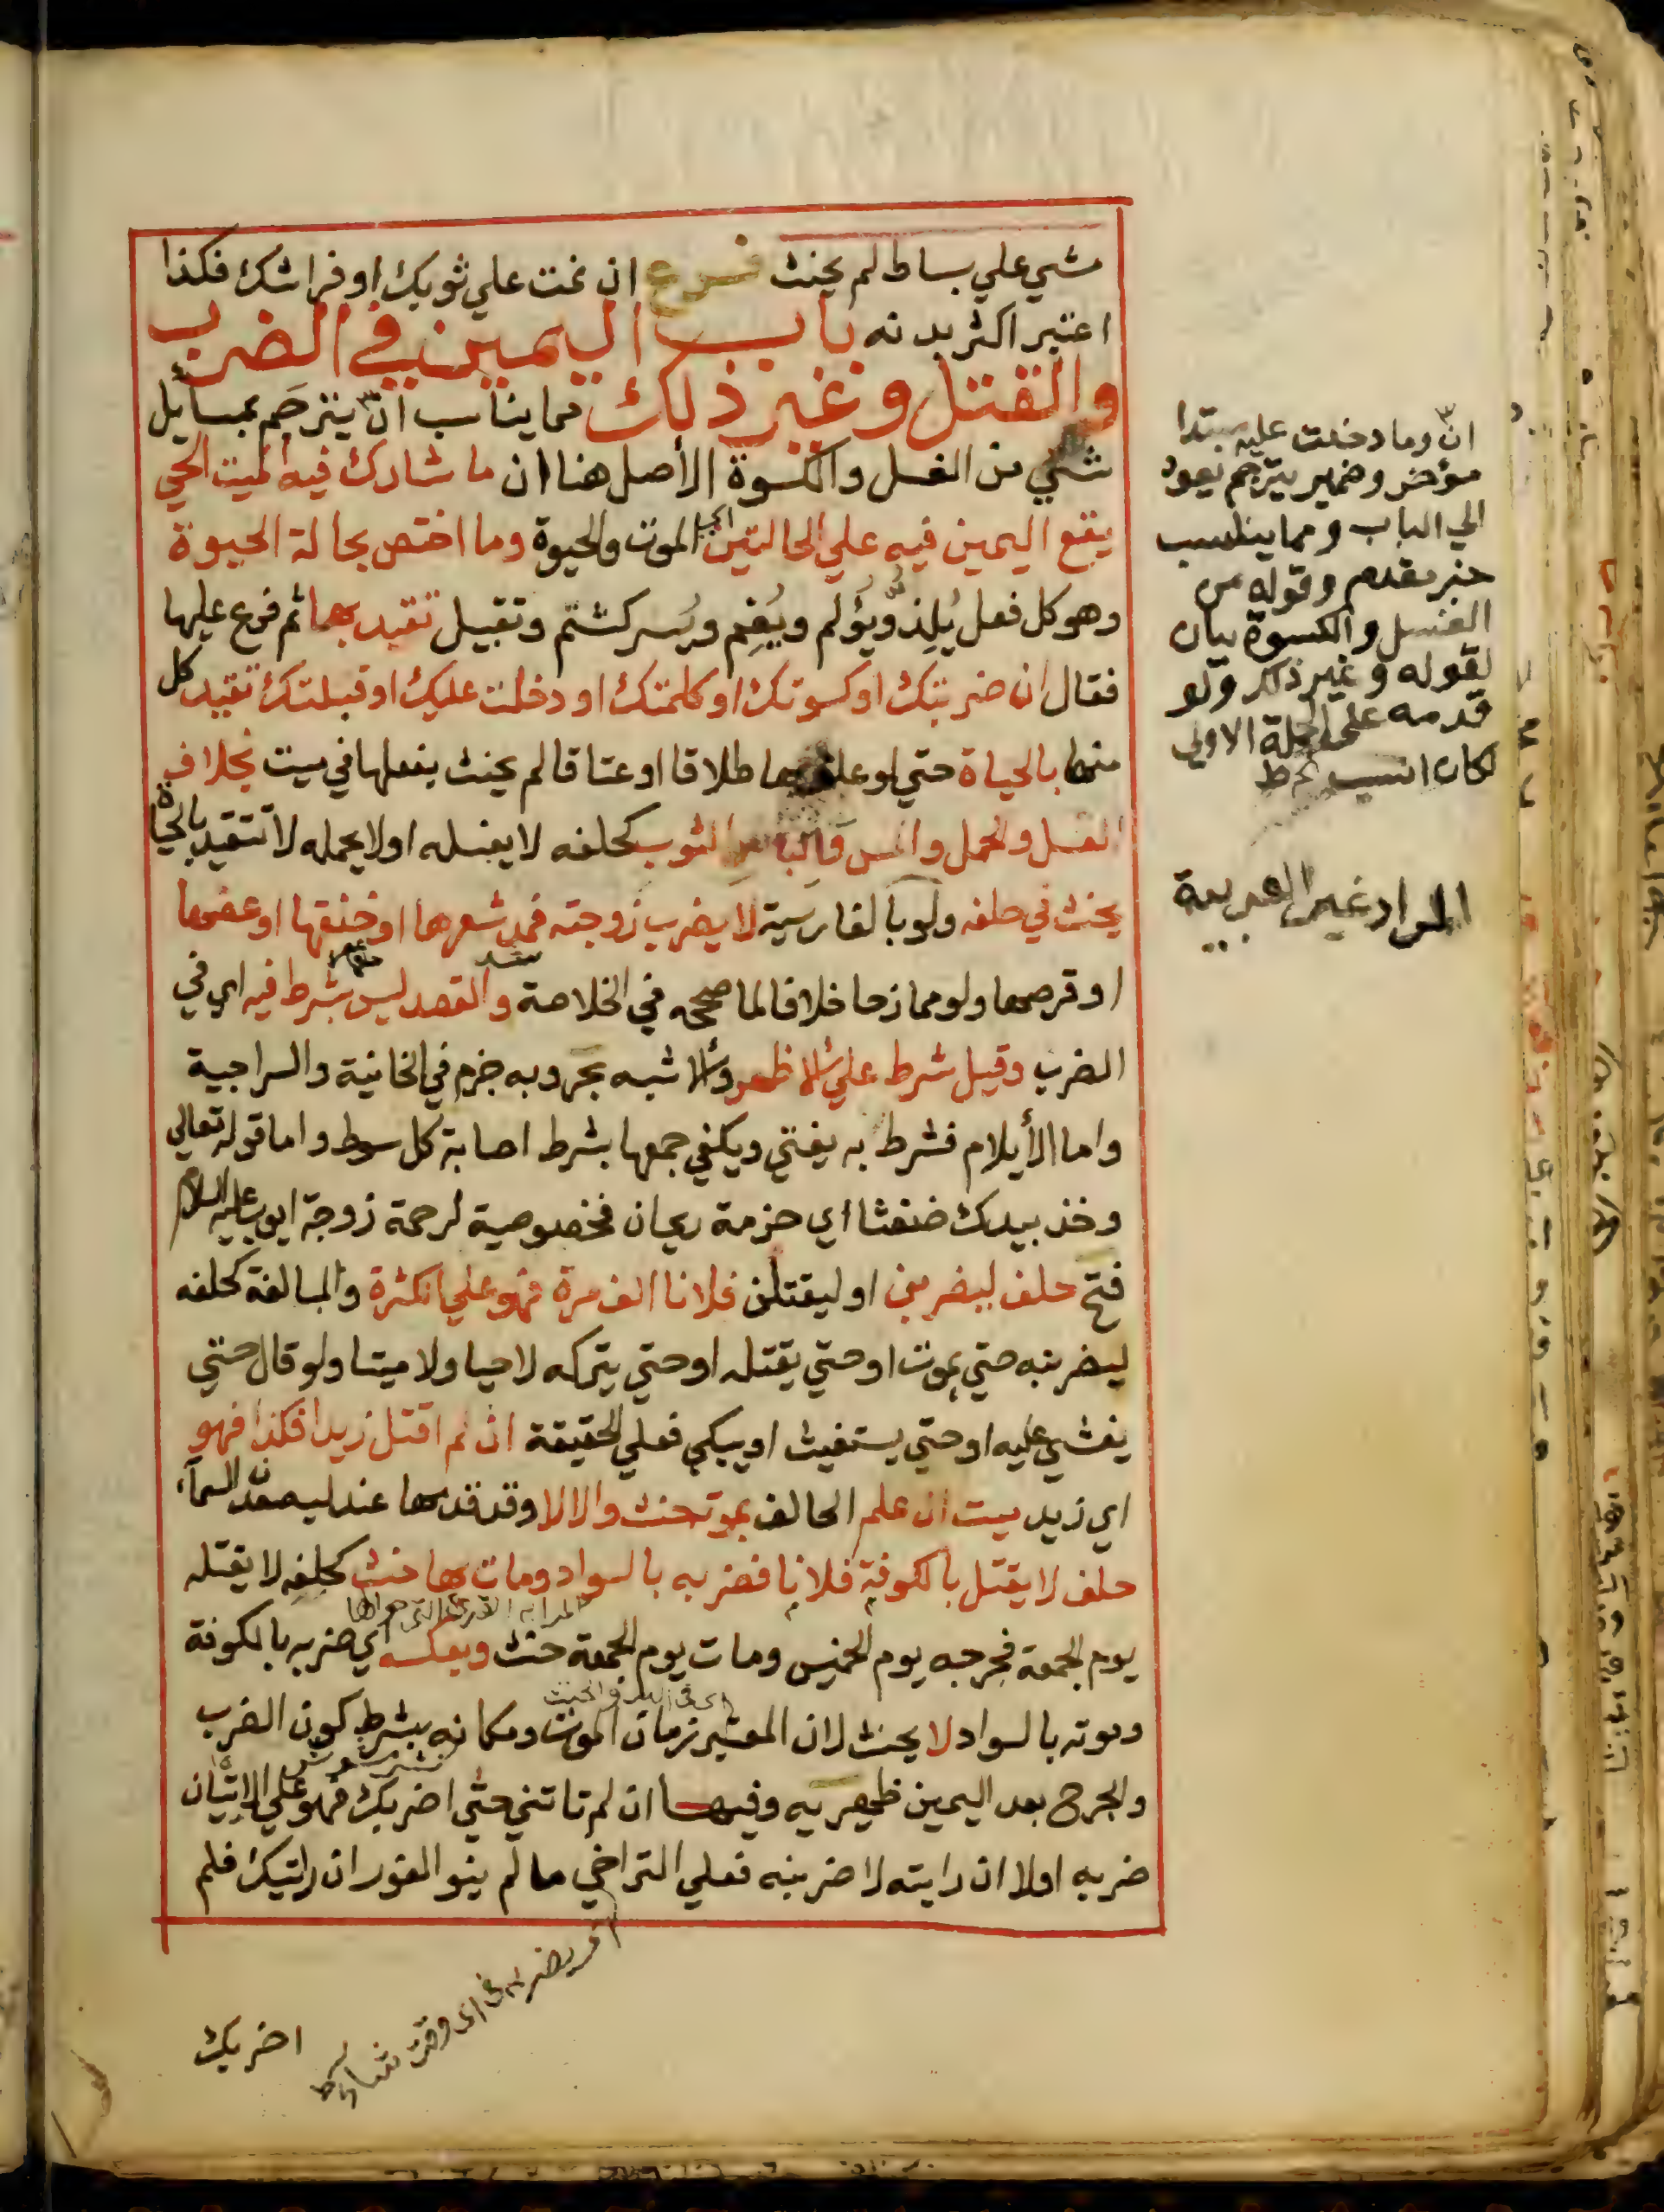 مشي علي بساط لم يحنث فرع ان نمت علي ثوبك او فراشك فكذا
اعتبر اكثر بدنه باب اليمين في الضرب
والقتل وغير ذلك مما يناسب ان يترجم بمسايل
شتي من الغسل والكسوة الأصل هنا ان ما شارك فيه الميت الحي
يقع اليمين فيه علي الحالتين الموت والحيوة وما اختص بحالة الحيوة
وهو كل فعل يُلِذ ويُؤلم ويُغِم ويُسر كشتم وتقبيل تقيد بها ثم فرع عليها
فقال ان ضربتك او كسوتك او كلمتك او دخلت عليك او قبلتك تقيد كل
منها بالحياة حتي لو علق بها طلاقا او عتاقا لم يحنث بفعلها في ميت بخلاف
الغسل والحمل والمس والباس الثوب كحلفه لا يغسله او لا يحمله لا تتقيد بالحياة
يحنث في حلفه ولو بالفارسية لا يضرب زوجته فمد شعرها او خنقها او عضها
او قرصها ولو ممازحا خلافا لما صححه في الخلاصة والقصد ليس بشرط فيه اي في
الضرب وقيل شرط علي الاظهر والاشبه بحر وبه جزم في الخانية والسراجية
واما الأيلام فشرط به يفتي ويكفي جمعها بشرط اصابة كل سوط واما قوله تعالي
وخذ بيدك ضغثا اي حزمة ريحان فخصوصية لرحمة زوجة ايوب عليه السلام
فتح حلف ليضربن او ليقتلن فلانا الف مرة فهو علي الكثرة والمبالغة كحلفه
ليضربنه حتي يموت او حتي يقتله او حتي يتركه لا حيا ولا ميتا ولو قال حتي
يغشي عليه او حتي يستغيث او يبكي فعلي الحقيقة ان لم اقتل زيدا فكذا فهو
اي زيد ميت ان علم الحالف بموته حنث والا لا وقد قدمها عند ليصعدن السمآء
حلف لا يقتل بالكوفة فلانا فضربه بالسواد ومات بها حنث كحلفه لا يقتله
يوم الجمعة فجرحه يوم الخميس ومات يوم الجمعة حنث وبعكسه اي ضربه بالكوفة
وموته بالسواد لا يحنث لان المعتبر زمان الموت ومكانه بشرط كون الضرب
والجرح بعد اليمين ظهيريه وفيها ان لم تاتني حتي اضربك فهو علي الاتيان
ضربه اولا ان رايته لاضربنه فعلي التراخي ما لم ينو الفور ان رايتك فلم
اضربك
انّ وما دخلت عليه مبتدا
مؤخر وضمير يترجم يعود
الي الباب ومما يناسب
خبر مقدم وقوله من
الغسل والكسوة بيان
لقوله وغير ذلك ولو
قدمه علي الجملة الاولي
لكان انسب ط
المراد غير العربية
يضربه في اي وقت شاء ط